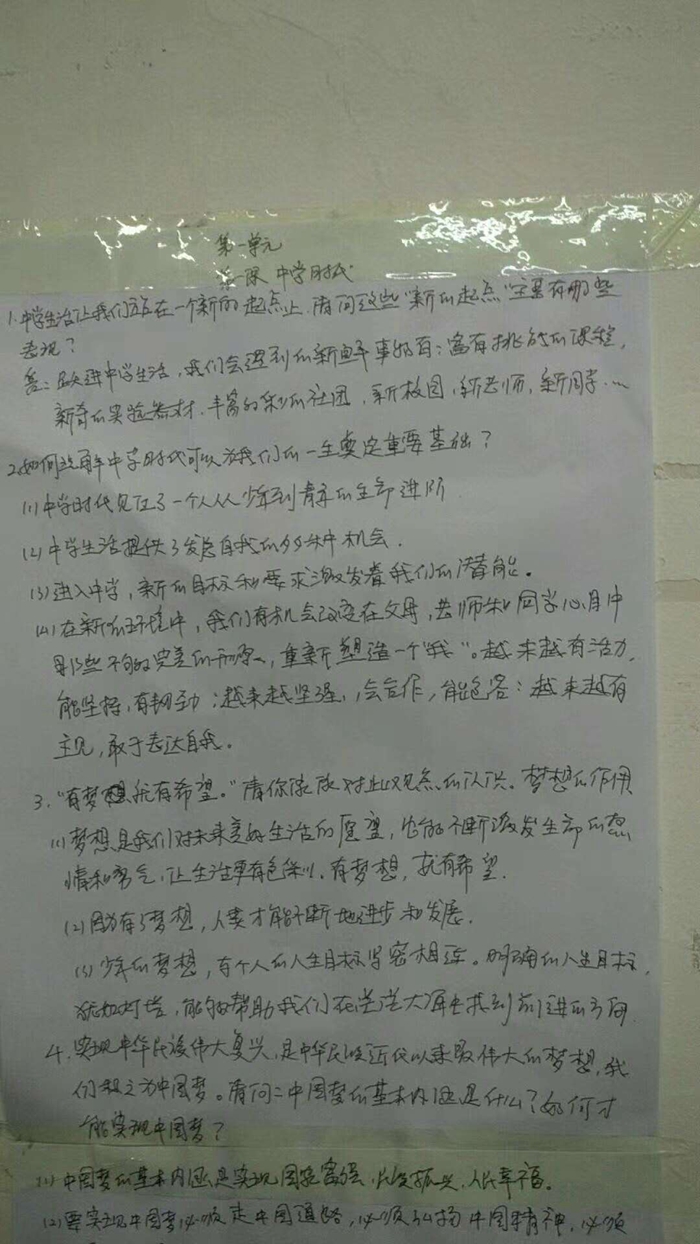 第一单元
第一课 中学时代
1.中学生活让我们站在一个新的起点上,请问这些"新的起点"主要有哪些
表现?
答:跃进中学生活,我们会遇到的新鲜事物有:富有挑战的课程,
新奇的实验器材,丰富多彩的社团,新校园,新老师,新同学…
2.如何理解中学时代可以为我们的一生奠定重要基础?
(1)中学时代见证了一个人从少年到青年的生命进阶
(2)中学生活提供了发展自我的多种机会.
(3)进入中学,新的目标和要求激发着我们的潜能。
(4)在新的环境中,我们有机会改变在父母,老师和同学心目中
那些不够完美的形象,重新塑造一个"我"。越来越有活力,
能坚持,有韧劲;越来越坚强,会合作,能包容;越来越有
主见,敢于表达自我。
3."有梦想就有希望。"请你谈谈对此观点的认识.梦想的作用
(1)梦想是我们对未来美好生活的愿望,它能不断激发生命的热
情和勇气,让生活更有色彩.有梦想,就有希望.
(2)因为有了梦想,人类才能不断地进步和发展.
(3)少年的梦想,与个人的人生目标紧密相连。明确的人生目标,
犹如灯塔,能够帮助我们在茫茫大海中找到前进的方向
4.实现中华民族伟大复兴,是中华民族近代以来最伟大的梦想,我
们称之为中国梦。请问:中国梦的基本内涵是什么?如何才
能实现中国梦?
(1)中国梦的基本内涵是实现国家富强,民族振兴,人民幸福。
(2)要实现中国梦必须走中国道路,必须弘扬中国精神,必须